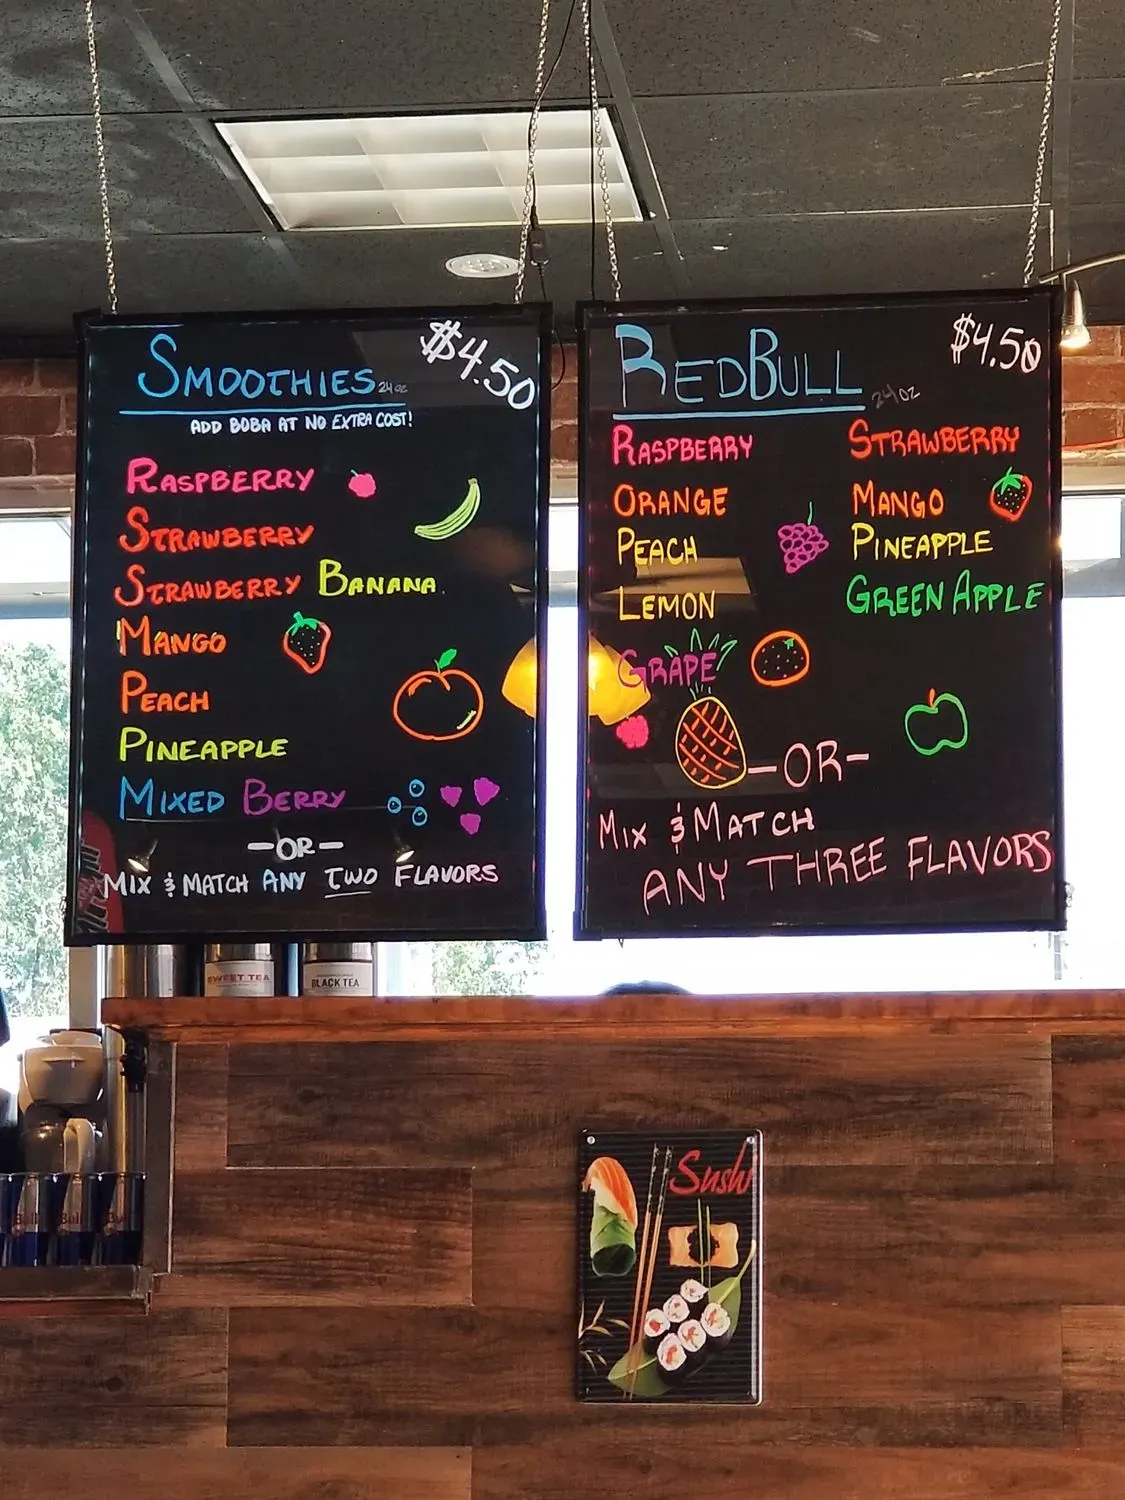 SMOOTHIES 24oz
$4.50
ADD BOBA AT NO EXTRA COST!
RASPBERRY
STRAWBERRY
STRAWBERRY BANANA
MANGO
PEACH
PINEAPPLE
MIXED BERRY
-OR-
MIX & MATCH ANY TWO FLAVORS
REDBULL 24oz
$4.50
RASPBERRY
ORANGE
PEACH
LEMON
GRAPE
STRAWBERRY
MANGO
PINEAPPLE
GREEN APPLE
-OR-
MIX & MATCH
ANY THREE FLAVORS
SWEET TEA
BLACK TEA
Sushi